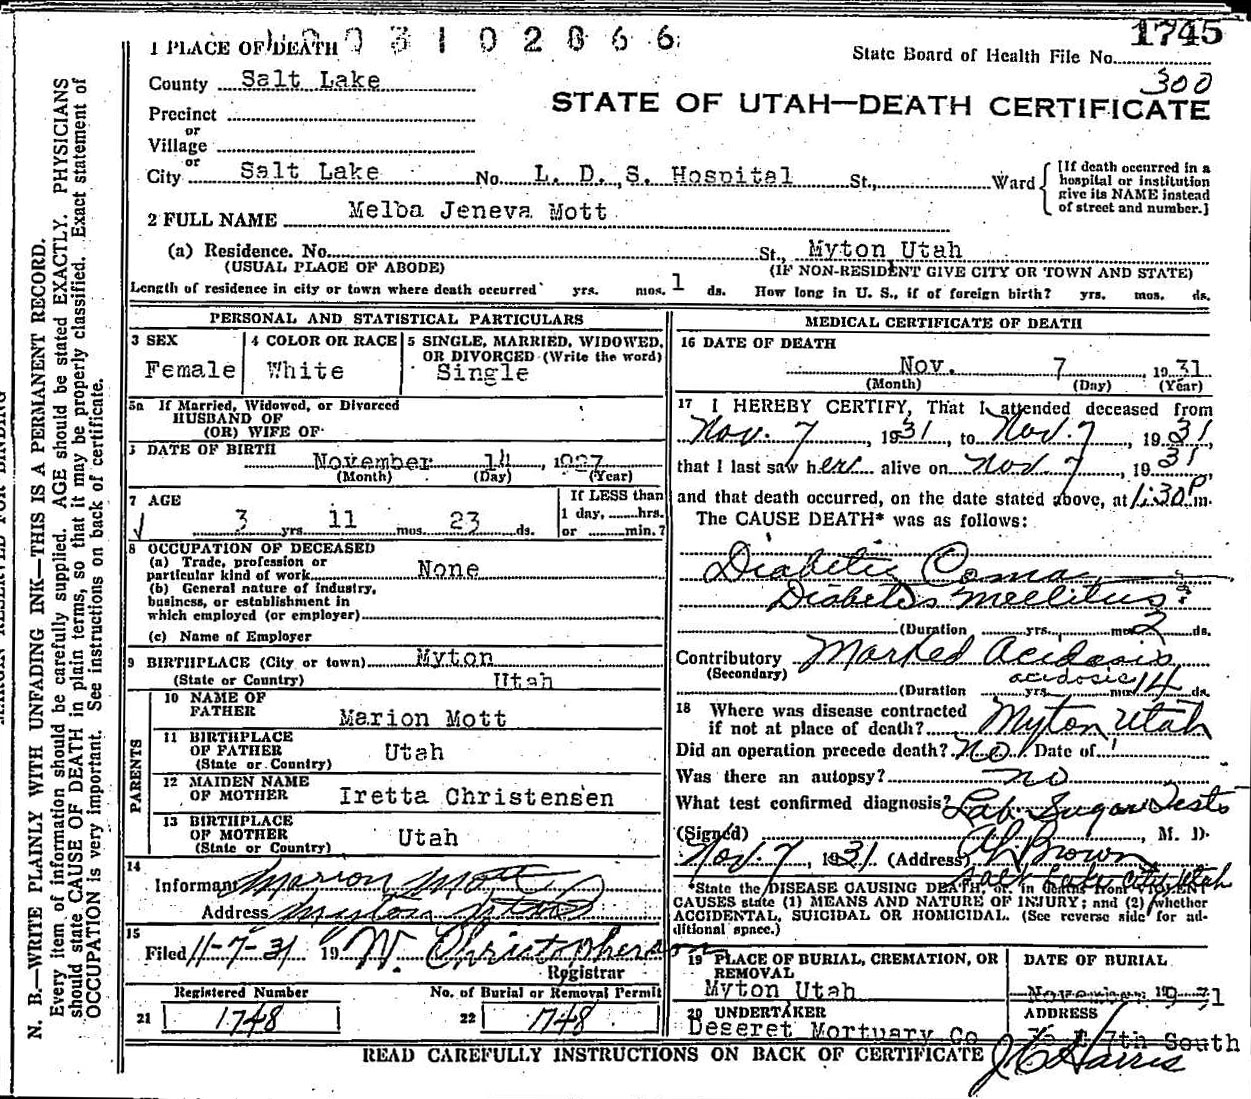 1 PLACE OF DEATH 1003102866
1745
State Board of Health File No.
300
County Salt Lake
STATE OF UTAH—DEATH CERTIFICATE
Precinct
or
Village
or
City Salt Lake No. L. D. S. Hospital St., Ward
[If death occurred in a
hospital or institution
give its NAME instead
of street and number.]
2 FULL NAME Melba Jeneva Mott
(a) Residence. No. St., Myton Utah
(USUAL PLACE OF ABODE) (IF NON-RESIDENT GIVE CITY OR TOWN AND STATE)
Length of residence in city or town where death occurred yrs. mos. 1 ds. How long in U. S., if of foreign birth? yrs. mos. ds.
PERSONAL AND STATISTICAL PARTICULARS
3 SEX
Female
4 COLOR OR RACE
White
5 SINGLE, MARRIED, WIDOWED,
OR DIVORCED (Write the word)
Single
5a If Married, Widowed, or Divorced
HUSBAND OF
(OR) WIFE OF
DATE OF BIRTH
November 14, 1927
(Month) (Day) (Year)
7 AGE
3 yrs. 11 mos. 23 ds.
If LESS than
1 day, hrs.
or min.?
8 OCCUPATION OF DECEASED
(a) Trade, profession or
particular kind of work None
(b) General nature of industry,
business, or establishment in
which employed (or employer)
(c) Name of Employer
9 BIRTHPLACE (City or town) Myton
(State or Country) Utah
PARENTS
10 NAME OF
FATHER Marion Mott
11 BIRTHPLACE
OF FATHER Utah
(State or Country)
12 MAIDEN NAME
OF MOTHER Iretta Christensen
13 BIRTHPLACE
OF MOTHER Utah
(State or Country)
14
Informant Marion Mott
Address Myton Utah
15
Filed 11-7-31 19 W. Christopherson
Registrar
Registered Number
21 1748
No. of Burial or Removal Permit
22 1748
MEDICAL CERTIFICATE OF DEATH
16 DATE OF DEATH
Nov. 7, 1931
(Month) (Day) (Year)
17 I HEREBY CERTIFY, That I attended deceased from
Nov. 7, 1931, to Nov. 7, 1931,
that I last saw her alive on Nov 7, 1931
and that death occurred, on the date stated above, at 1:30 P m.
The CAUSE DEATH* was as follows:
Diabetic Coma
Diabetes Mellitus
(Duration yrs. mos. 2 ds.
Contributory Marked Acidosis
(Secondary) acidosis
(Duration yrs. mos. 14 ds.
18 Where was disease contracted
if not at place of death? Myton Utah
Did an operation precede death? No Date of
Was there an autopsy? no
What test confirmed diagnosis? Lab. Sugar Tests
(Signed) Brown, M. D.
Nov. 7, 1931 (Address) Salt Lake City Utah
*State the DISEASE CAUSING DEATH, or, in deaths from VIOLENT
CAUSES state (1) MEANS AND NATURE OF INJURY; and (2) whether
ACCIDENTAL, SUICIDAL OR HOMICIDAL. (See reverse side for ad-
ditional space.)
19 PLACE OF BURIAL, CREMATION, OR
REMOVAL
Myton Utah
DATE OF BURIAL
November 9 31
20 UNDERTAKER
Deseret Mortuary Co
ADDRESS
E 7th South
J C Harris
READ CAREFULLY INSTRUCTIONS ON BACK OF CERTIFICATE
N. B.—WRITE PLAINLY WITH UNFADING INK—THIS IS A PERMANENT RECORD.
Every item of information should be carefully supplied. AGE should be stated EXACTLY. PHYSICIANS
should state CAUSE OF DEATH in plain terms, so that it may be properly classified. Exact statement of
OCCUPATION is very important. See instructions on back of certificate.
MARGIN RESERVED FOR BINDING